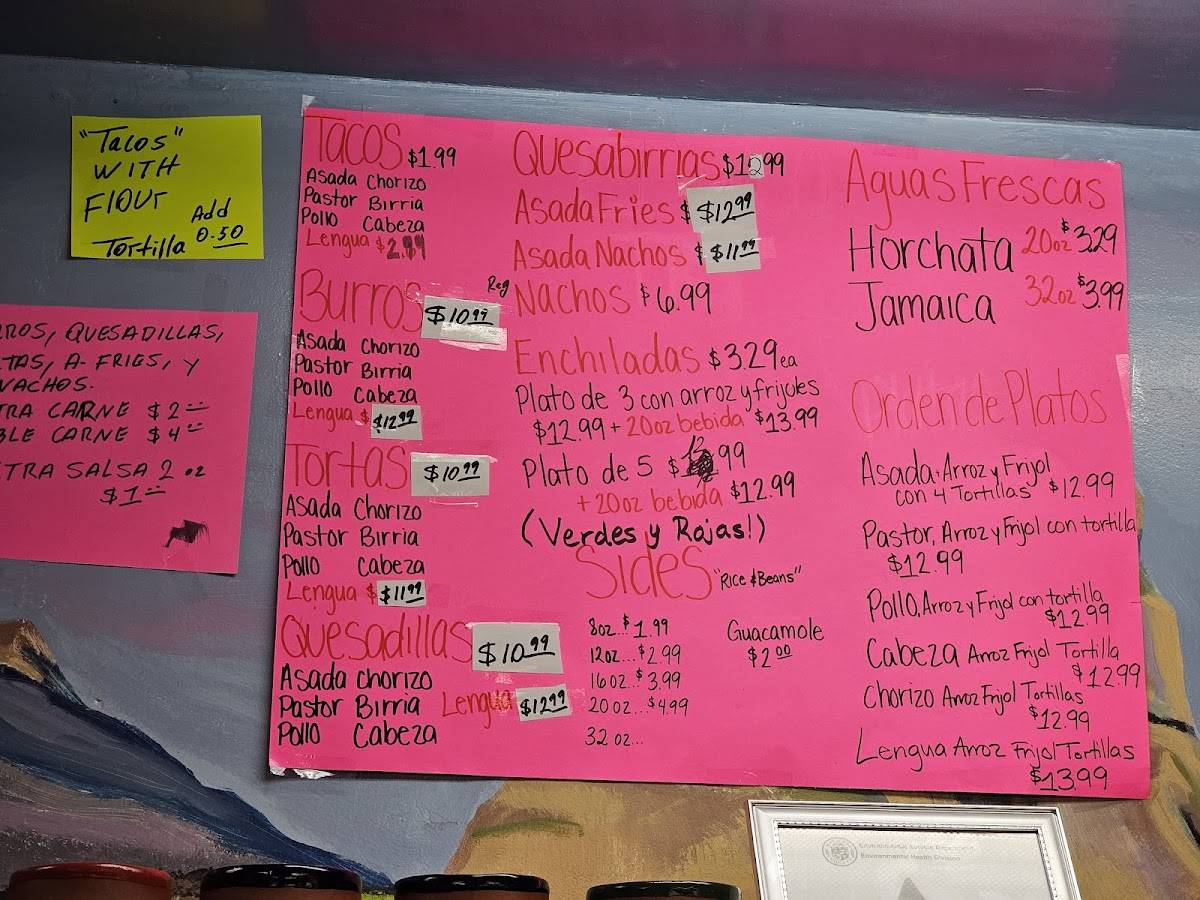 "Tacos"
WITH
FlOUr
Tortilla
Add
0.50
ROS, QUESADILLAS,
TAS, A-FRIES, Y
NACHOS.
TRA CARNE $2
BLE CARNE $4
TRA SALSA 2 oz
$1
Tacos $1.99
Asada Chorizo
Pastor Birria
Pollo Cabeza
Lengua $2.
Burros $10.99
Asada Chorizo
Pastor Birria
Pollo Cabeza
Lengua $ $12.99
Tortas $10.99
Asada Chorizo
Pastor Birria
Pollo Cabeza
Lengua $ $11.99
Quesadillas $10.99
Asada chorizo
Pastor Birria Lengua $12.99
Pollo Cabeza
Quesabirrias $12.99
Asada Fries $ $12.99
Asada Nachos $ $11.99
Reg Nachos $6.99
Enchiladas $3.29 ea
Plato de 3 con arroz y frijoles
$12.99 + 20oz bebida $13.99
Plato de 5 $ 99
+ 20oz bebida $12.99
(Verdes y Rajas!)
Sides "Rice & Beans"
8oz...$1.99
12oz...$2.99
16oz...$3.99
20oz...$4.99
32 oz...
Guacamole
$2.00
Aguas Frescas
Horchata 20oz $3.29
Jamaica 32oz $3.99
Orden de Platos
Asada, Arroz y Frijol
con 4 Tortillas $12.99
Pastor, Arroz y Frijol con tortilla
$12.99
Pollo, Arroz y Frijol con tortilla
$12.99
Cabeza Arroz Frijol Tortilla
$12.99
Chorizo Arroz Frijol Tortillas
$12.99
Lengua Arroz Frijol Tortillas
$13.99
Environmental Service Department
Environmental Health Division